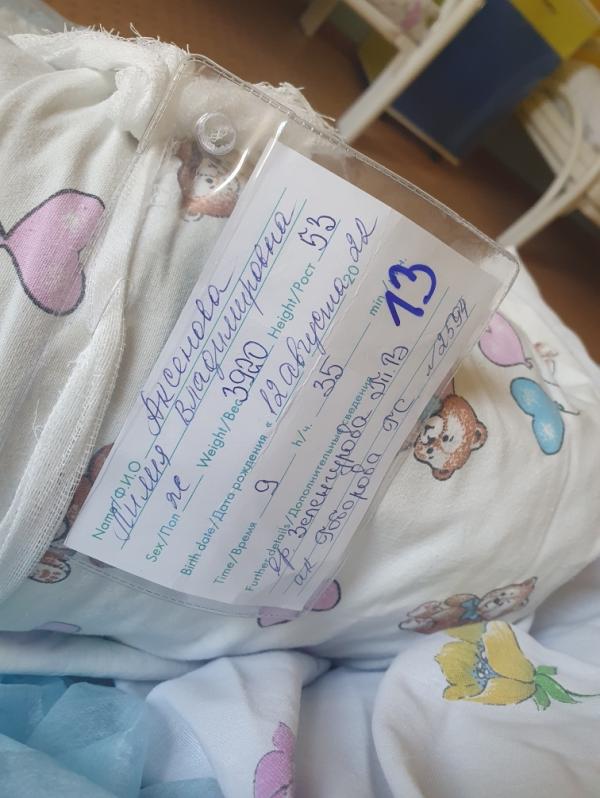 Name/Ф.И.О Аксенова
Лилия Владимировна
Sex/Пол ж Weight/Вес 3920 Height/Рост 53
Birth date/Дата рождения « 12 августа 2022
Time/Время 9 h/ч. 35 min/
Further details/Дополнительные сведения
вр Зеленчукова
ак ГС 2594
13